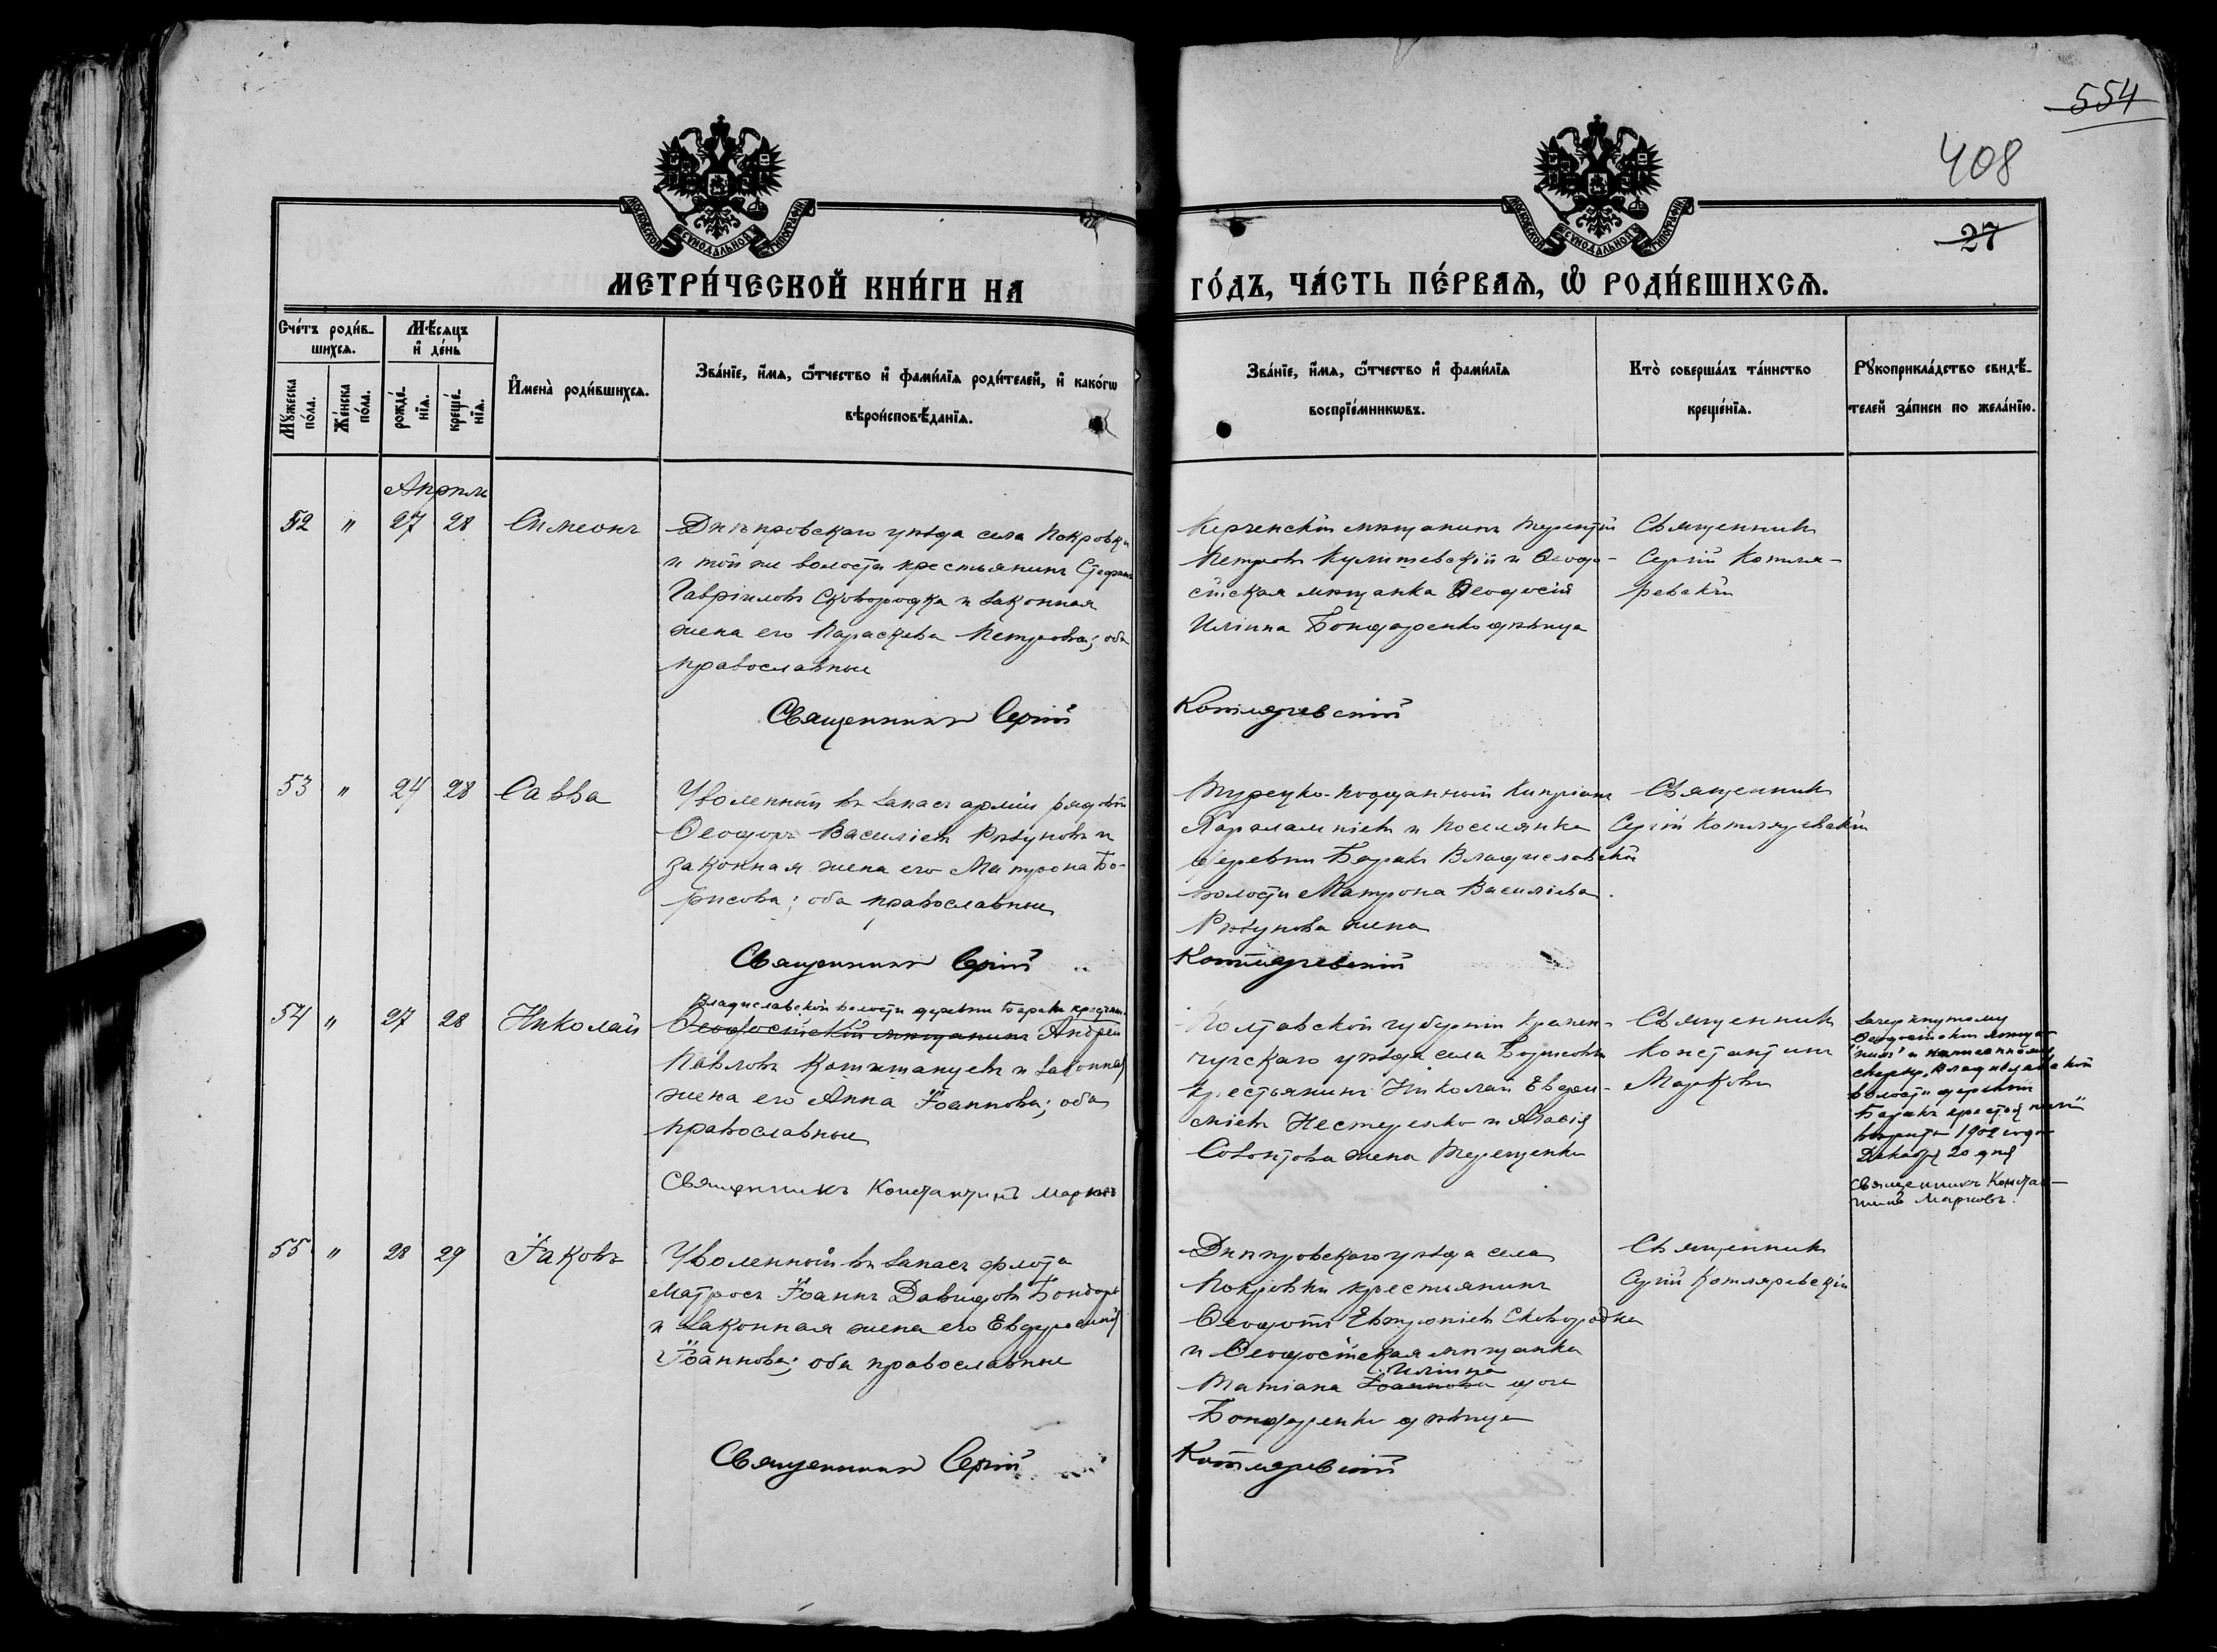 554
408
27
МОСКОВСКОЙ СѴНОДАЛЬНОЙ ТИПОГРАФІИ
МОСКОВСКОЙ СѴНОДАЛЬНОЙ ТИПОГРАФІИ
МЕТРИ́ЧЕСКОЙ КНИ́ГИ НА
ГО́ДЪ, ЧА́СТЬ ПЕ́РВАѦ, Ѡ҆ РОДИ́ВШИХСѦ.
Сче́тъ роди́в-
шихсѧ.
Мѣ́сѧцъ
и҆ де́нь
Мꙋ́жеска
по́ла.
Же́нска
по́ла.
рожде́-
нїѧ.
креще́-
нїѧ.
И҆мена̀ роди́вшихсѧ.
Зва́нїе, и҆́мѧ, ѻ҆́тчество и҆ фами́лїѧ роди́телей, и҆ како́гѡ
вѣроисповѣ́данїѧ.
Зва́нїе, и҆́мѧ, ѻ҆́тчество и҆ фами́лїѧ
воспрїе́мникѡвъ.
Кто̀ соверша́лъ та́инство
креще́нїѧ.
Рꙋкоприкла́дство свидѣ́-
телей за́писи по жела́нїю.
Апрѣль
52 " 27 28 Симеонъ
Днѣпровскаго уѣзда села Покровки
и той же волости крестьянинъ Стефанъ
Гавріиловъ Сковородка и законная
жена его Параскева Петрова; оба
православные
Керченскій мѣщанинъ Терентій
Петровъ Кулишевскій и Ѳеодо-
сійская мѣщанка Ѳеодосія
Иліина Бондаренко дѣвица
Священникъ
Сергій Котля-
ревскій
Священникъ Сергій
Котляревскій
53 " 24 28 Савва
Уволенный въ запасъ арміи рядовой
Ѳеодоръ Василіевъ Рѣзуновъ и
законная жена его Матрона Бо-
рисова; оба православные
Турецко-подданный Кипріанъ
Харалампіевъ и поселянка
деревни Баракъ Владиславской
волости Матрона Василіева
Рѣзунова жена
Священникъ
Сергій Котляревскій
Священникъ Сергій
Котляревскій
54 " 27 28 Николай
Владиславской волости деревни Баракъ крестьян.
Ѳеодосійскій мѣщанинъ Андрей
Павловъ и законная
жена его Анна Іоаннова; оба
православные
Полтавской губерніи Кремен-
чугскаго уѣзда села
крестьянинъ Николай Евѳи-
міевъ Нестеренко и
жена Терещенко
Священникъ
Константинъ
Марковъ
Зачеркнутому
"Ѳеодосійскій мѣща-
нинъ" и написанному
сверху "Владиславской
волости деревни
Баракъ крестьянинъ"
вѣрить 1902 года
Декабря 20 дня
Священникъ Констан-
тинъ Марковъ.
Священникъ Константинъ Марковъ
55 " 28 29 Іаковъ
Уволенный въ запасъ флота
матросъ Іоаннъ Давидовъ Бондарь
и законная жена его Евфросинія
Іоаннова; оба православные
Днѣпровскаго уѣзда села
Покровки крестьянинъ
Ѳеодотъ Евтропіевъ Сковородка
и Ѳеодосійская мѣщанка
Иліина
Татіана Іоаннова дочь
Бондаренко дѣвица
Священникъ
Сергій Котляревскій
Священникъ Сергій
Котляревскій